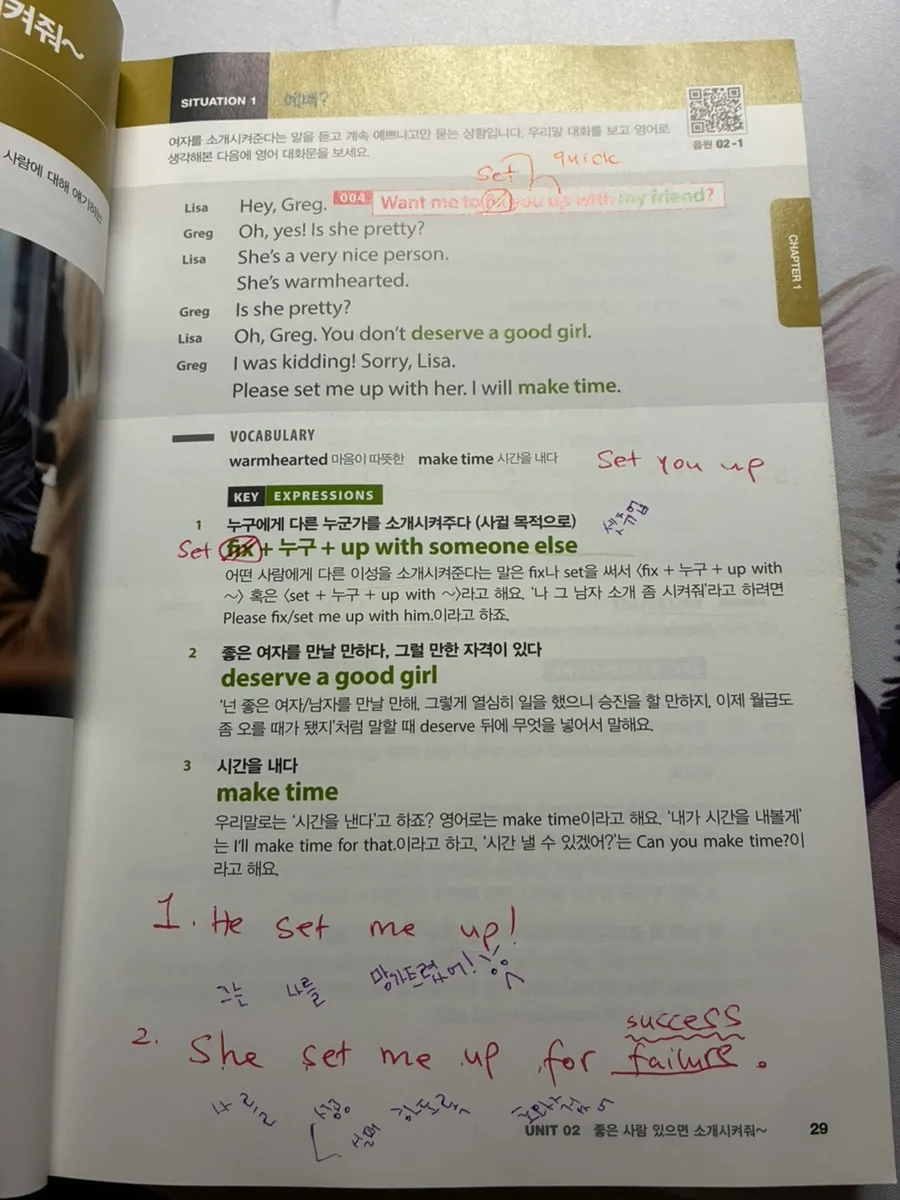 켜줘~
사람에 대해 얘기하는
SITUATION 1 예뻐?
여자를 소개시켜준다는 말을 듣고 계속 예쁘냐고만 묻는 상황입니다. 우리말 대화를 보고 영어로
생각해본 다음에 영어 대화문을 보세요.
음원 02-1
set quick
Lisa Hey, Greg. 004 Want me to fix you up with my friend?
Greg Oh, yes! Is she pretty?
Lisa She's a very nice person.
She's warmhearted.
Greg Is she pretty?
Lisa Oh, Greg. You don't deserve a good girl.
Greg I was kidding! Sorry, Lisa.
Please set me up with her. I will make time.
CHAPTER 1
VOCABULARY
warmhearted 마음이 따뜻한 make time 시간을 내다
Set you up
셋츄업
KEY EXPRESSIONS
1 누구에게 다른 누군가를 소개시켜주다 (사귈 목적으로)
Set fix + 누구 + up with someone else
어떤 사람에게 다른 이성을 소개시켜준다는 말은 fix나 set을 써서 〈fix + 누구 + up with
~〉 혹은 〈set + 누구 + up with ~〉라고 해요. '나 그 남자 소개 좀 시켜줘'라고 하려면
Please fix/set me up with him.이라고 하죠.
2 좋은 여자를 만날 만하다, 그럴 만한 자격이 있다
deserve a good girl
'넌 좋은 여자/남자를 만날 만해, 그렇게 열심히 일을 했으니 승진을 할 만하지, 이제 월급도
좀 오를 때가 됐지'처럼 말할 때 deserve 뒤에 무엇을 넣어서 말해요.
3 시간을 내다
make time
우리말로는 '시간을 낸다'고 하죠? 영어로는 make time이라고 해요. '내가 시간을 내볼게'
는 I'll make time for that.이라고 하고, '시간 낼 수 있겠어?'는 Can you make time?이
라고 해요.
1. He set me up!
그는 나를 망가트렸어!
success
2. She set me up for failure.
나를 성공
실패
UNIT 02 좋은 사람 있으면 소개시켜줘~ 29